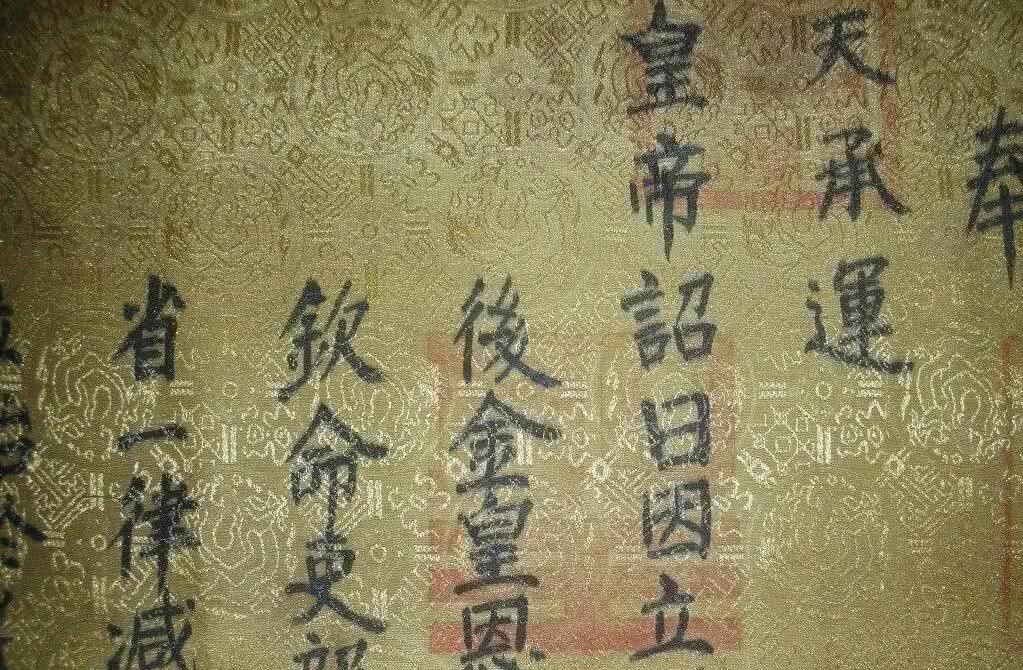 奉
天承運
皇帝詔曰因立
後金皇恩
欽命吏部
省一律減